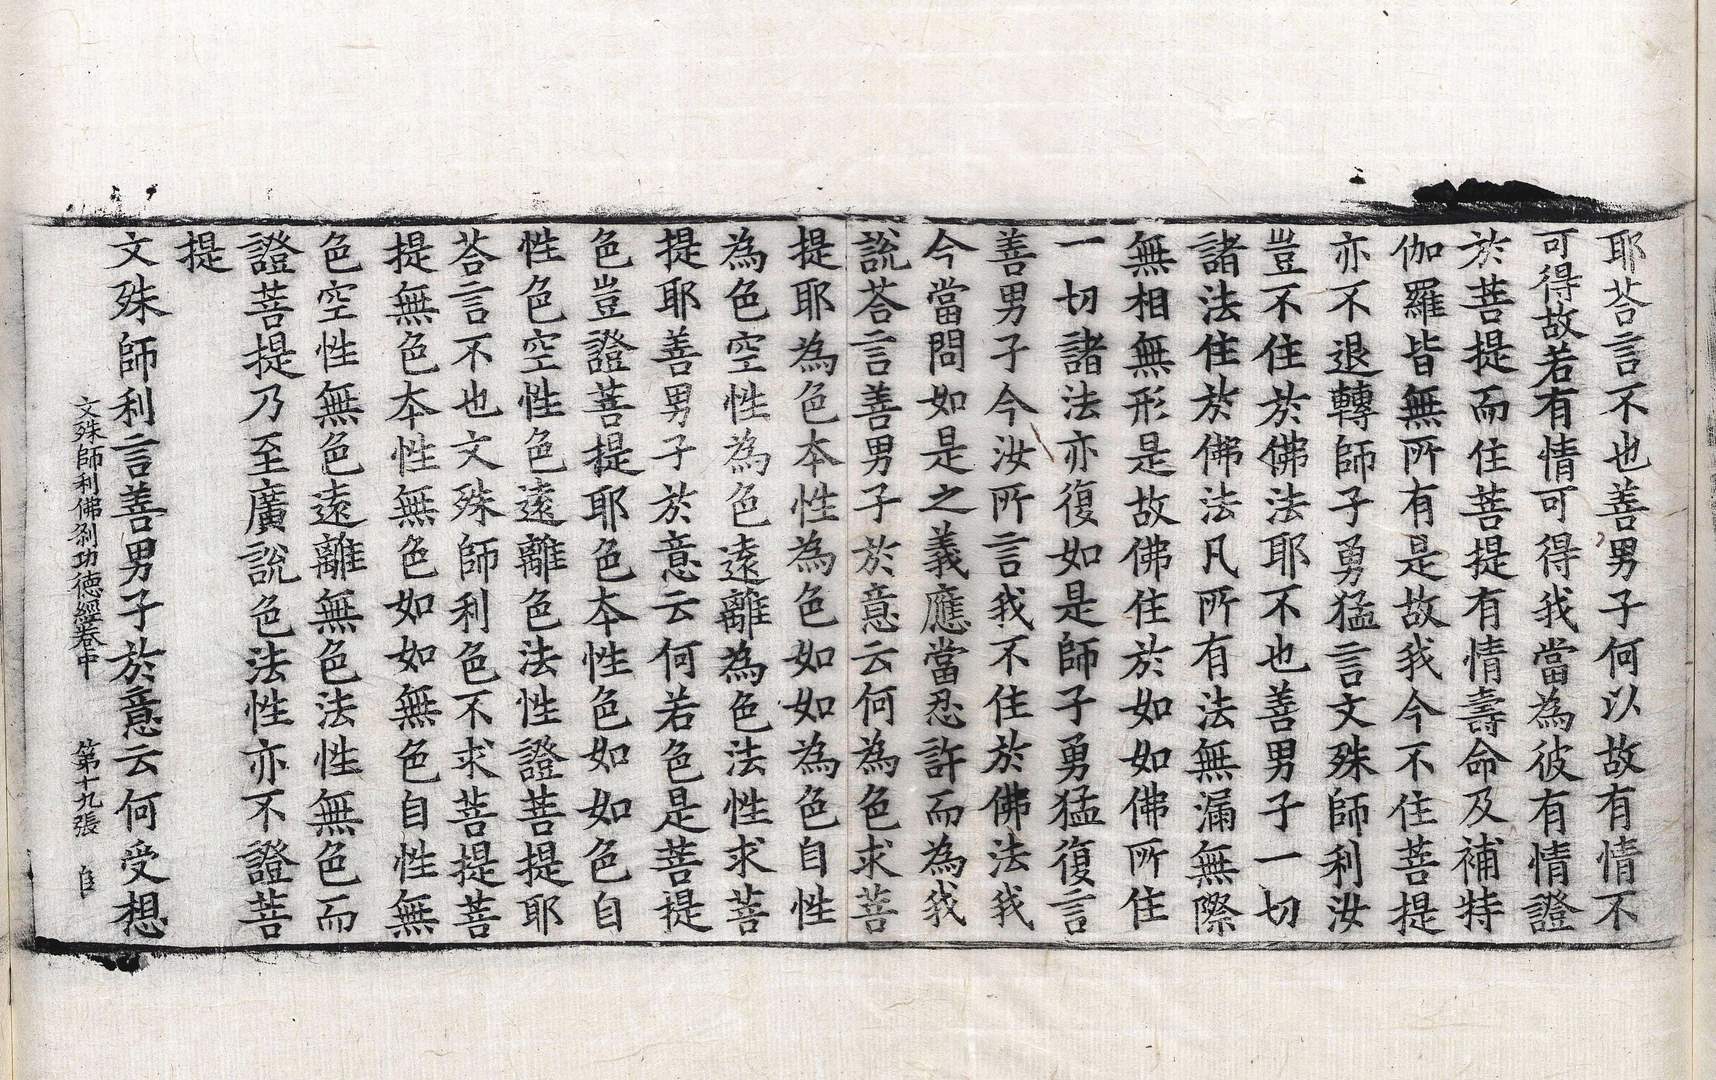 耶荅言不也善男子何以故有情不
可得故若有情可得我當為彼有情證
於菩提而住菩提有情壽命及補特
伽羅皆無所有是故我今不住菩提
亦不退轉師子勇猛言文殊師利汝
豈不住於佛法耶不也善男子一切
諸法住於佛法凡所有法無漏無際
無相無形是故佛住於如如佛所住
一切諸法亦復如是師子勇猛復言
善男子今汝所言我不住於佛法我
今當問如是之義應當忍許而為我
說荅言善男子於意云何為色求菩
提耶為色本性為色如如為色自性
為色空性為色遠離為色法性求菩
提耶善男子於意云何若色是菩提
色豈證菩提耶色本性色如如色自
性色空性色遠離色法性證菩提耶
荅言不也文殊師利色不求菩提菩
提無色本性無色如如無色自性無
色空性無色遠離無色法性無色而
證菩提乃至廣說色法性亦不證菩
提
文殊師利言善男子於意云何受想
文殊師利佛刹功德經卷中 第十九張